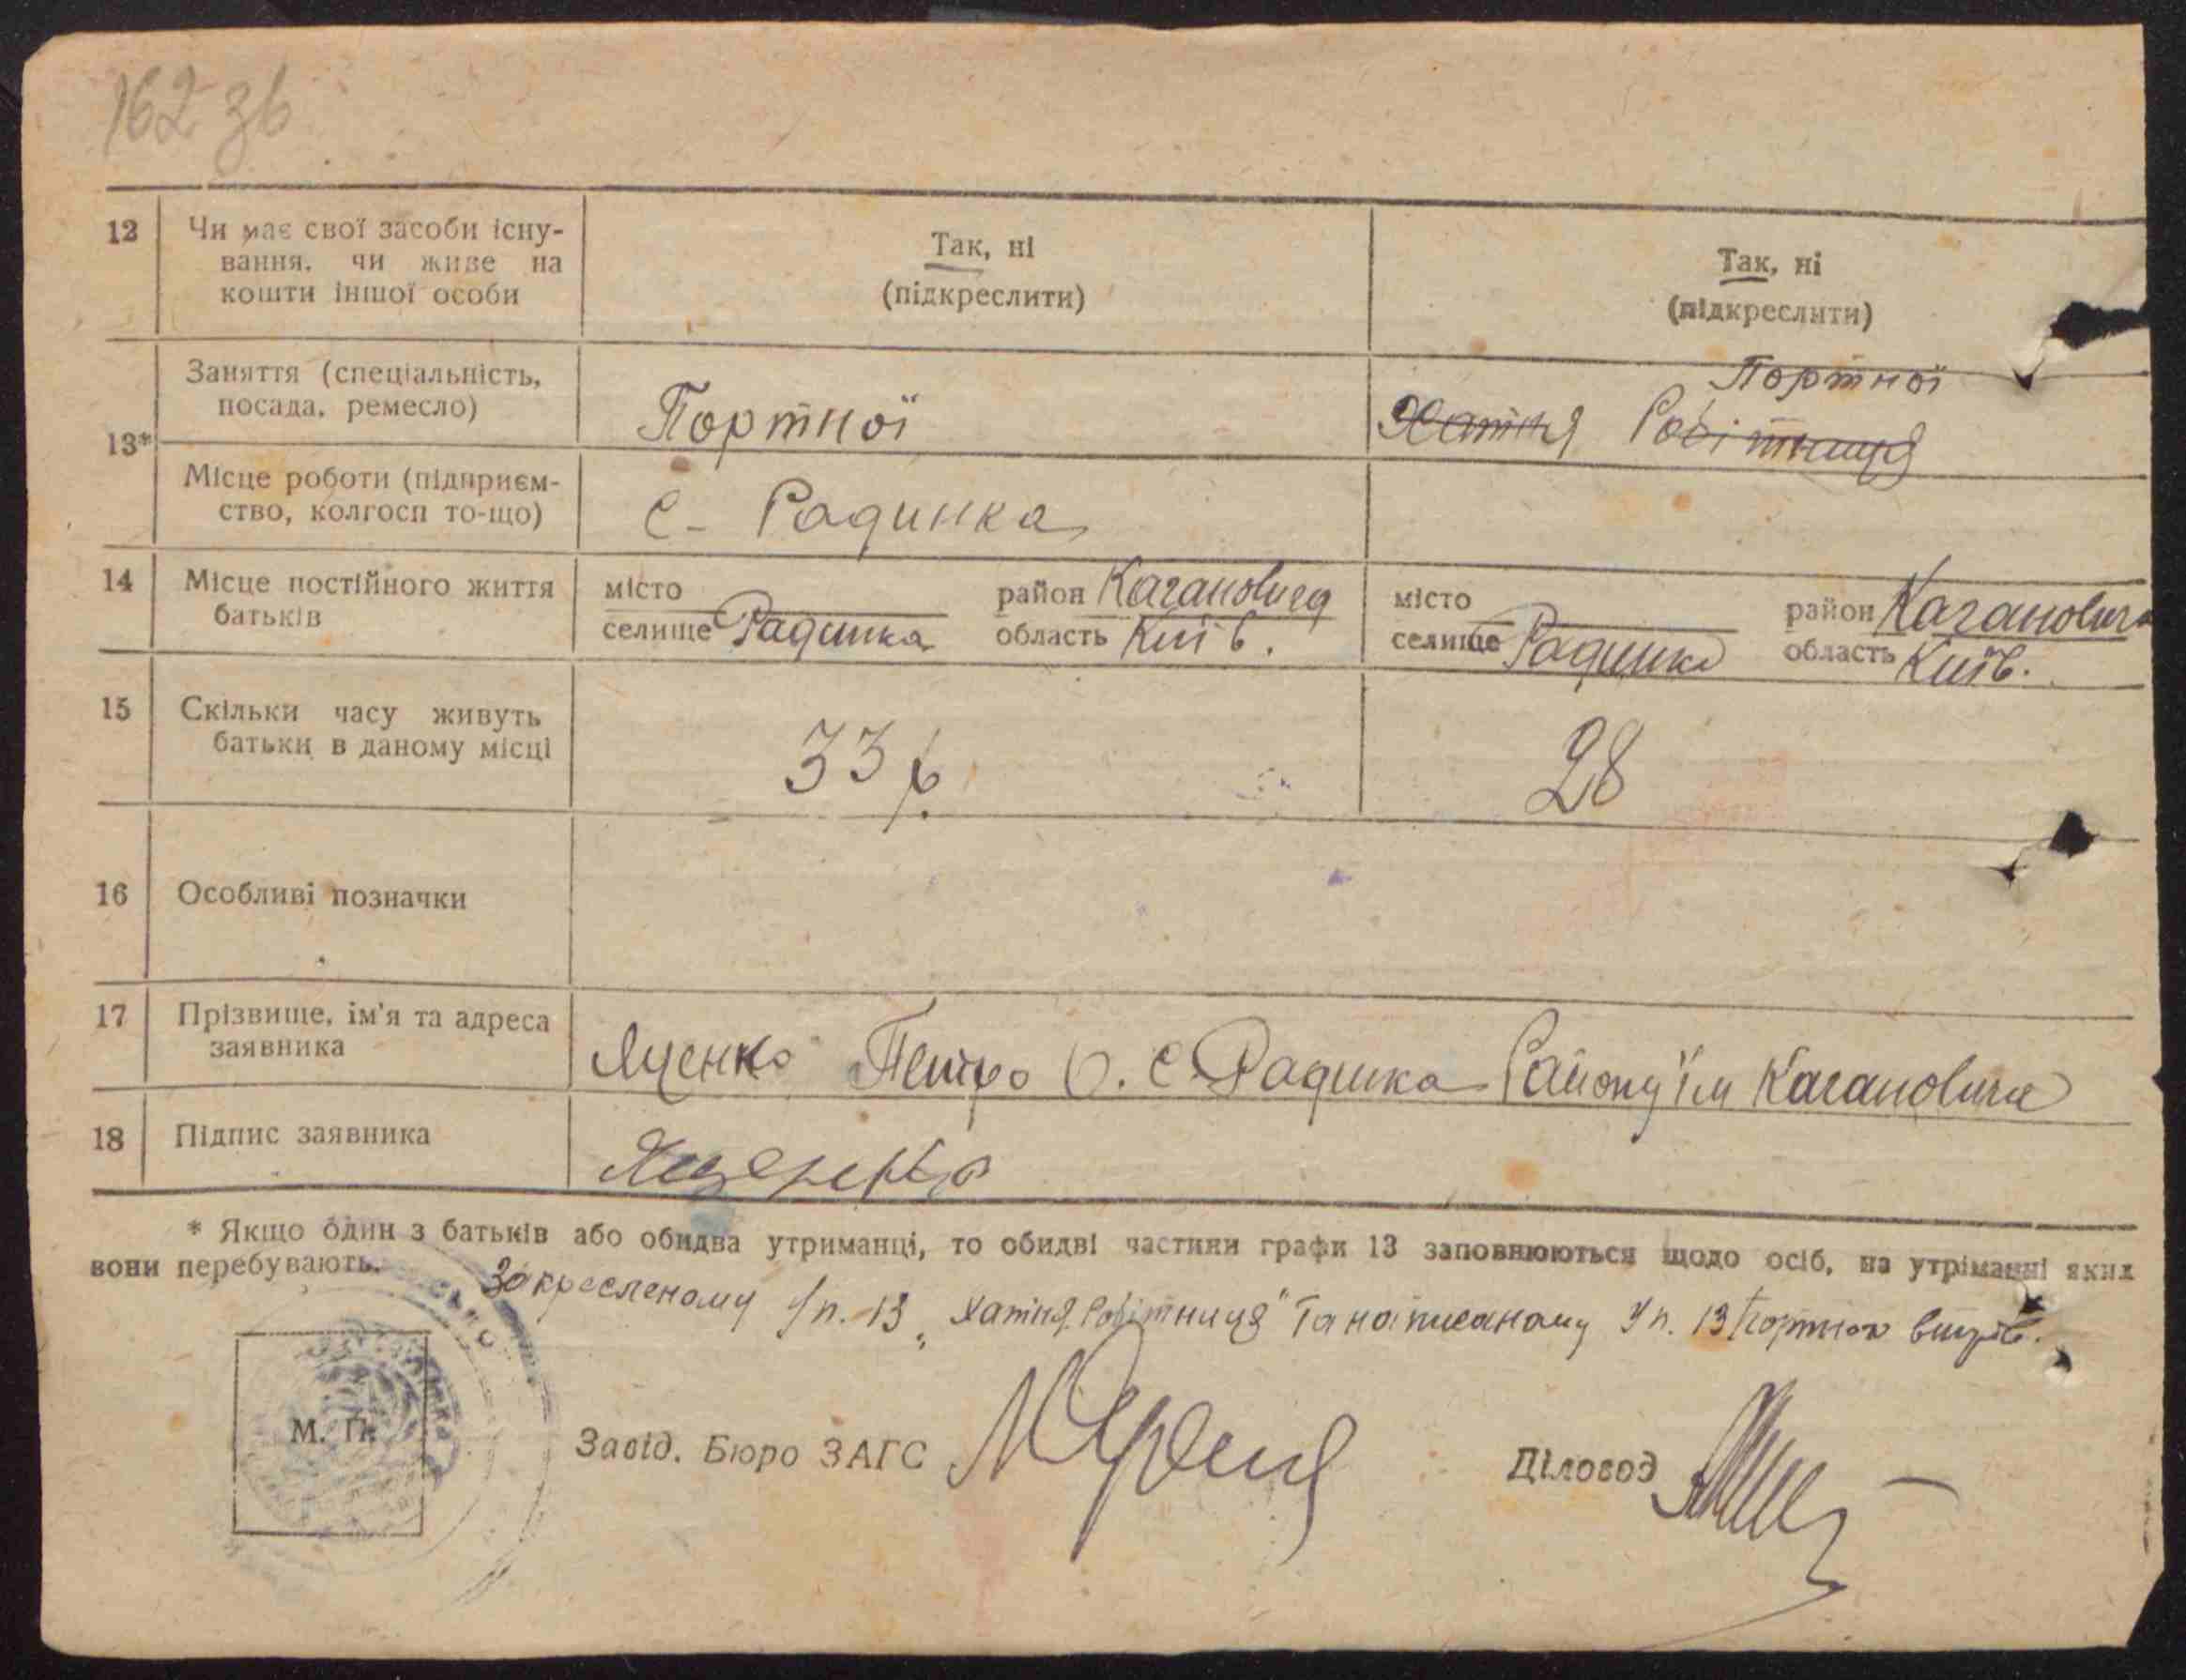 162 зв
12 Чи має свої засоби існу-
вання, чи живе на
кошти іншої особи
Так, ні
(підкреслити)
Так, ні
(підкреслити)
13*
Заняття (спеціальність,
посада, ремесло)
Портної
Портної
Хатня Робітниця
Місце роботи (підприєм-
ство, колгосп то-що)
с- Радинка
14 Місце постійного життя
батьків
місто
селище Радинка
район Кагановича
область Київ.
місто
селище Радинка
район Кагановича
область Київ.
15 Скільки часу живуть
батьки в даному місці
33 р.
28
16 Особливі позначки
17 Прізвище, ім'я та адреса
заявника
Яценко Петро О. с. Радинка Району ім Кагановича
18 Підпис заявника
Яценко
* Якщо один з батьків або обидва утриманці, то обидві частини графи 13 заповнюються щодо осіб, на утріманні яких
вони перебувають.
Закресленому у п. 13 „Хатня Робітниця" та написаному у п. 13 Портної
М. П.
Завід. Бюро ЗАГС
Діловод